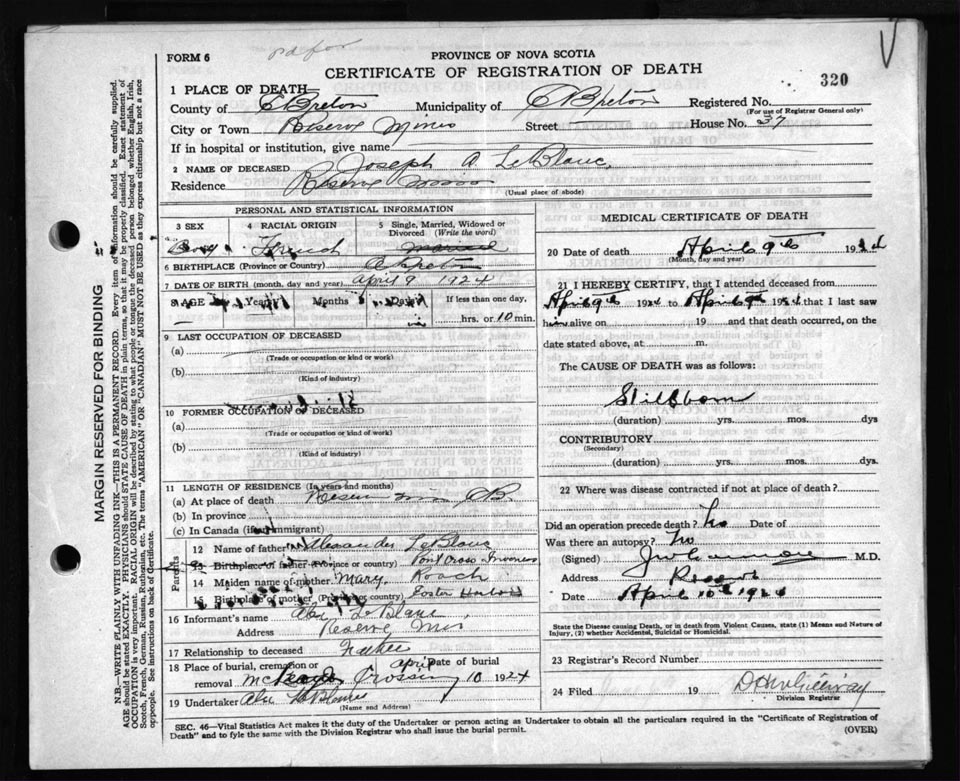 FORM 6
PROVINCE OF NOVA SCOTIA
CERTIFICATE OF REGISTRATION OF DEATH
320
1 PLACE OF DEATH
County of C Breton Municipality of C Breton Registered No.
(For use of Registrar General only)
City or Town Reserve Mines Street House No. 37
If in hospital or institution, give name
2 NAME OF DECEASED Joseph A. LeBlanc
Residence Reserve Mines
(Usual place of abode)
PERSONAL AND STATISTICAL INFORMATION
3 SEX 4 RACIAL ORIGIN 5 Single, Married, Widowed or Divorced (Write the word)
Boy French
6 BIRTHPLACE (Province or Country) C Breton
7 DATE OF BIRTH (month, day and year) April 9 1924
8 AGE Years Months Days If less than one day,
hrs. or 10 min.
9 LAST OCCUPATION OF DECEASED
(a)
(Trade or occupation or kind or work)
(b)
(Kind of industry)
10 FORMER OCCUPATION OF DECEASED
(a)
(Trade or occupation or kind or work)
(b)
(Kind of industry)
11 LENGTH OF RESIDENCE (In years and months)
(a) At place of death C.B.
(b) In province
(c) In Canada (if an immigrant)
Parents
12 Name of father Alexander LeBlanc
13 Birthplace of father (Province or country) Inverness
14 Maiden name of mother Mary Roach
15 Birthplace of mother (Province or country)
16 Informant's name Alex LeBlanc
Address Reserve Mines
17 Relationship to deceased Father
18 Place of burial, cremation or removal Crossing Date of burial April 10 1924
19 Undertaker Alex LeBlanc
(Name and Address)
MEDICAL CERTIFICATE OF DEATH
20 Date of death April 9th 1924
(Month, day and year)
21 I HEREBY CERTIFY, that I attended deceased from
April 9th 1924 to April 9th 1924 that I last saw
him alive on 19 and that death occurred, on
date stated above, at m.
The CAUSE OF DEATH was as follows:
Stillborn
(duration) yrs. mos. dys
CONTRIBUTORY
(Secondary)
(duration) yrs. mos. dys.
22 Where was disease contracted if not at place of death?
Did an operation precede death? No Date of
Was there an autopsy? No
(Signed) M.D.
Address Reserve
Date April 10th 1924
State the Disease causing Death, or in death from Violent Causes, state (1) Means and Nature of Injury, (2) whether Accidental, Suicidal or Homicidal.
23 Registrar's Record Number
24 Filed 19
Division Registrar
SEC. 46—Vital Statistics Act makes it the duty of the Undertaker or person acting as Undertaker to obtain all the particulars required in the "Certificate of Registration of
Death" and to fyle the same with the Division Registrar who shall issue the burial permit. (OVER)
MARGIN RESERVED FOR BINDING
N.B.—WRITE PLAINLY WITH UNFADING INK—THIS IS A PERMANENT RECORD. Every item of information should be carefully supplied.
AGE should be stated EXACTLY. PHYSICIANS should STATE CAUSE OF DEATH in plain terms, so that it may be properly classified. Exact statement of
OCCUPATION is very important. RACIAL ORIGIN will be described by stating to what people or tongue the deceased person belonged whether English, Irish,
Scotch, French, German, Russian, Ruthenian, etc. The terms "AMERICAN" OR "CANADIAN" MUST NOT BE USED as they express citizenship but not a race
or people. See instructions on back of Certificate.